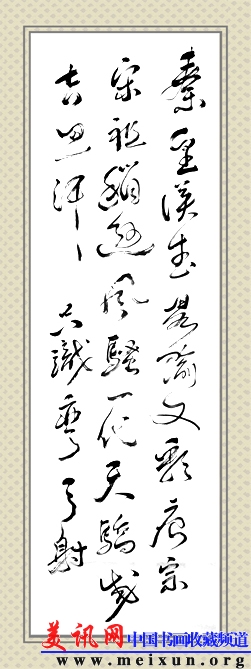 秦皇漢武畧輸文彩唐宗
宋祖稍遜風騷一代天驕成
吉思汗 只識彎弓射
美讯网 中国书画收藏频道
www.meixun.org